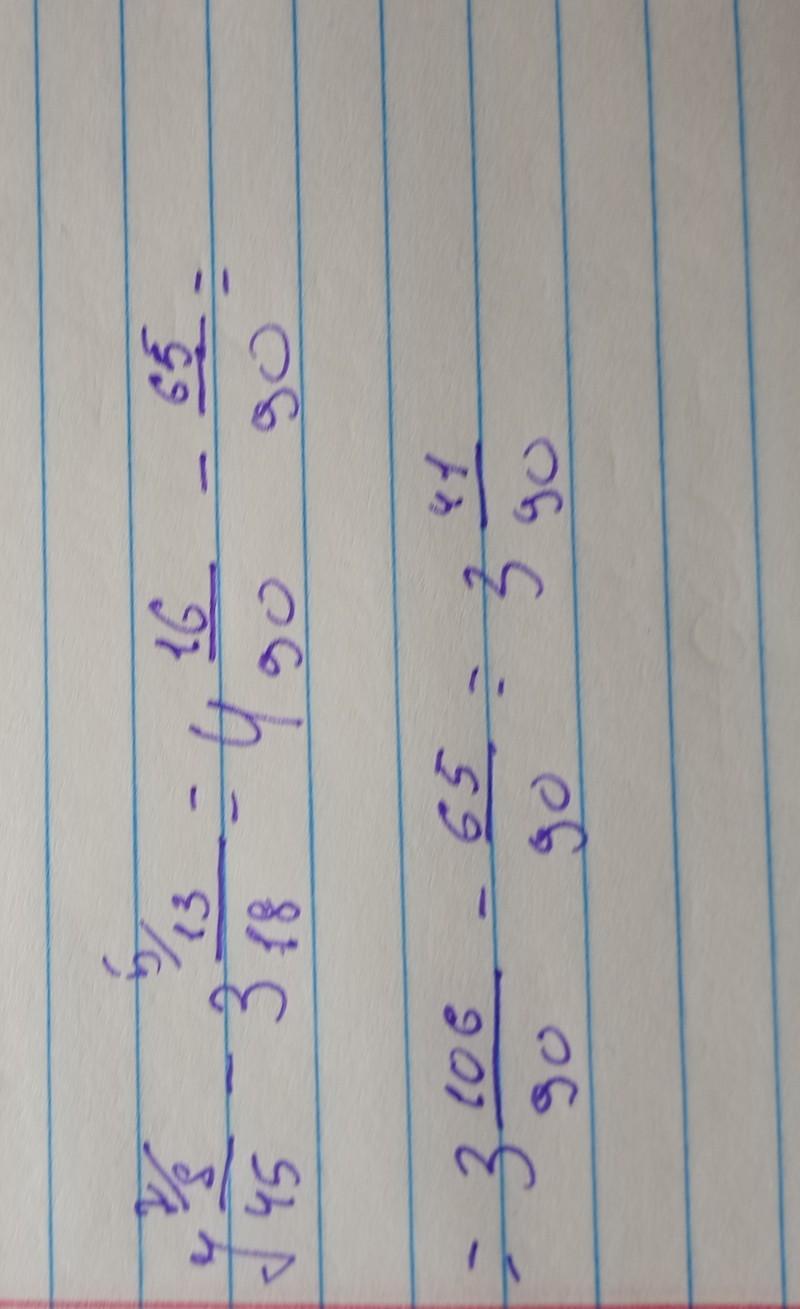 4 2/ 8/45 - 3 5/ 13/18 = 4 16/90 - 65/90 =
= 3 106/90 - 65/90 = 3 41/90